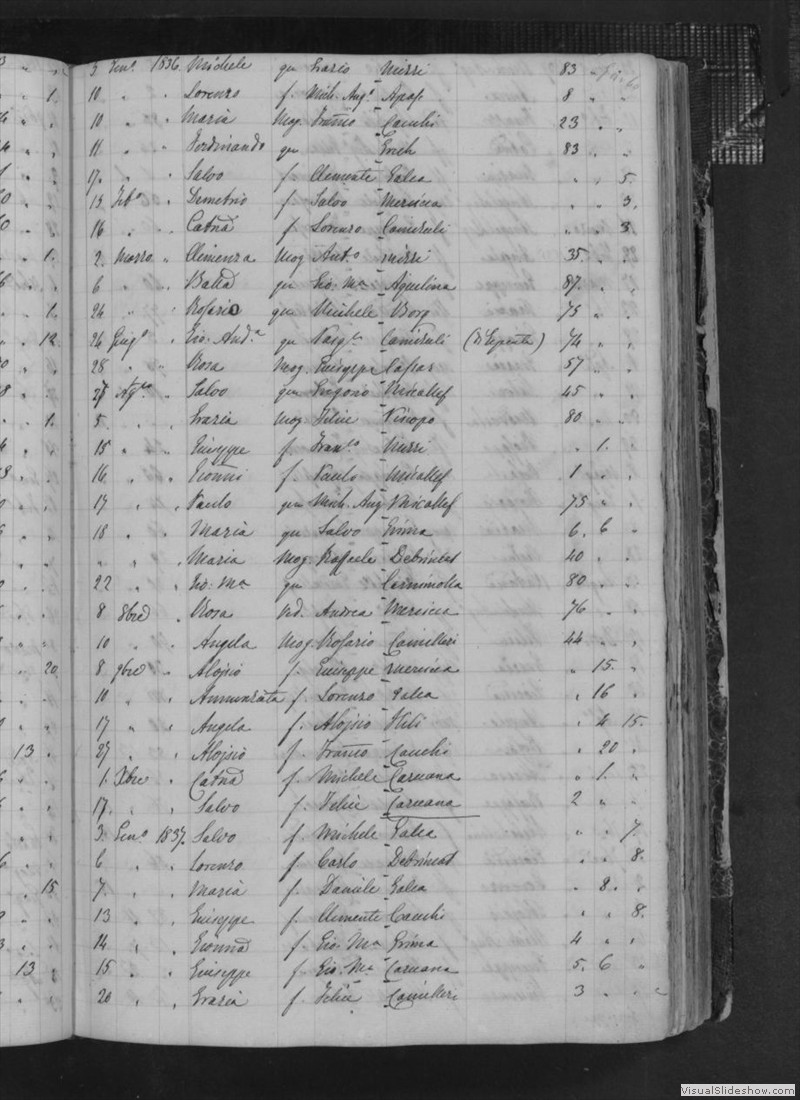 5 Genº 1836 Michele qu Grazio Missi 83
10 " " Lorenzo f. Mich. Angº Apap. 8
10 " " Maria Mog Franco Cauchi 23
11 " " Ferdinando qu Erich 83
17 " " Salvo f. Clemente Galea 5.
15 Febº " Demetrio f. Salvo Mercieca 3.
16 " " Catnª f. Lorenzo Camilleri 3
2 Marzo " Clemenza Mog Antº Missi 35.
6 " " qu Gio. Mª Aquilina 87.
24 " " Rosario qu Michele Borg 75
26 Giugº " Gio. Andª qu Camilleri 74
28 " " Rosa Mog Giuseppe 57
27 Agto " Salvo qu Gregorio Micallef 45
5 " " Grazia Mog Felice Piscopo 80
15 " " Giuseppe f. Franco 1.
16 " " f. Paulo Micallef 1
17 " " Paulo qu Mich. Ang Micallef 75
18 " " Maria qu Salvo Grima 6. 6
" " " Maria Mog Raffaele Debrincat 40
22 " " Gio. Mª qu 80
8 8bre " Rosa Vd. Andrea Mercieca 76
10 " " Angela Mog. Rosario Camilleri 44
8 9bre " Alojsio f. Giuseppe Mercieca 15
10 " " Annunziata f. Lorenzo Galea 16
17 " " Angela f. Alojsio 4 15.
27 " " Alojsio f. Franco Cauchi 20
1. Xbre " Catnª f. Michele Caruana 1.
17. " " Salvo f. Felice Caruana 2
3. Genº 1837. Salvo f. Michele Galea 7.
6 " " Lorenzo f. Carlo Debrincat 8.
7. " " Maria f. Daniele Galea 8.
13 " " Giuseppe f. Clemente Cauchi 8.
14 " " Gionna f. Gio. Mª Grima 4
15 " " Giuseppe f. Gio. Mª Caruana 5. 6
20 " " Grazia f. Felice Camilleri 3
1.
1.
1.
12
1.
20
13
15
13
VisualSlideshow.com